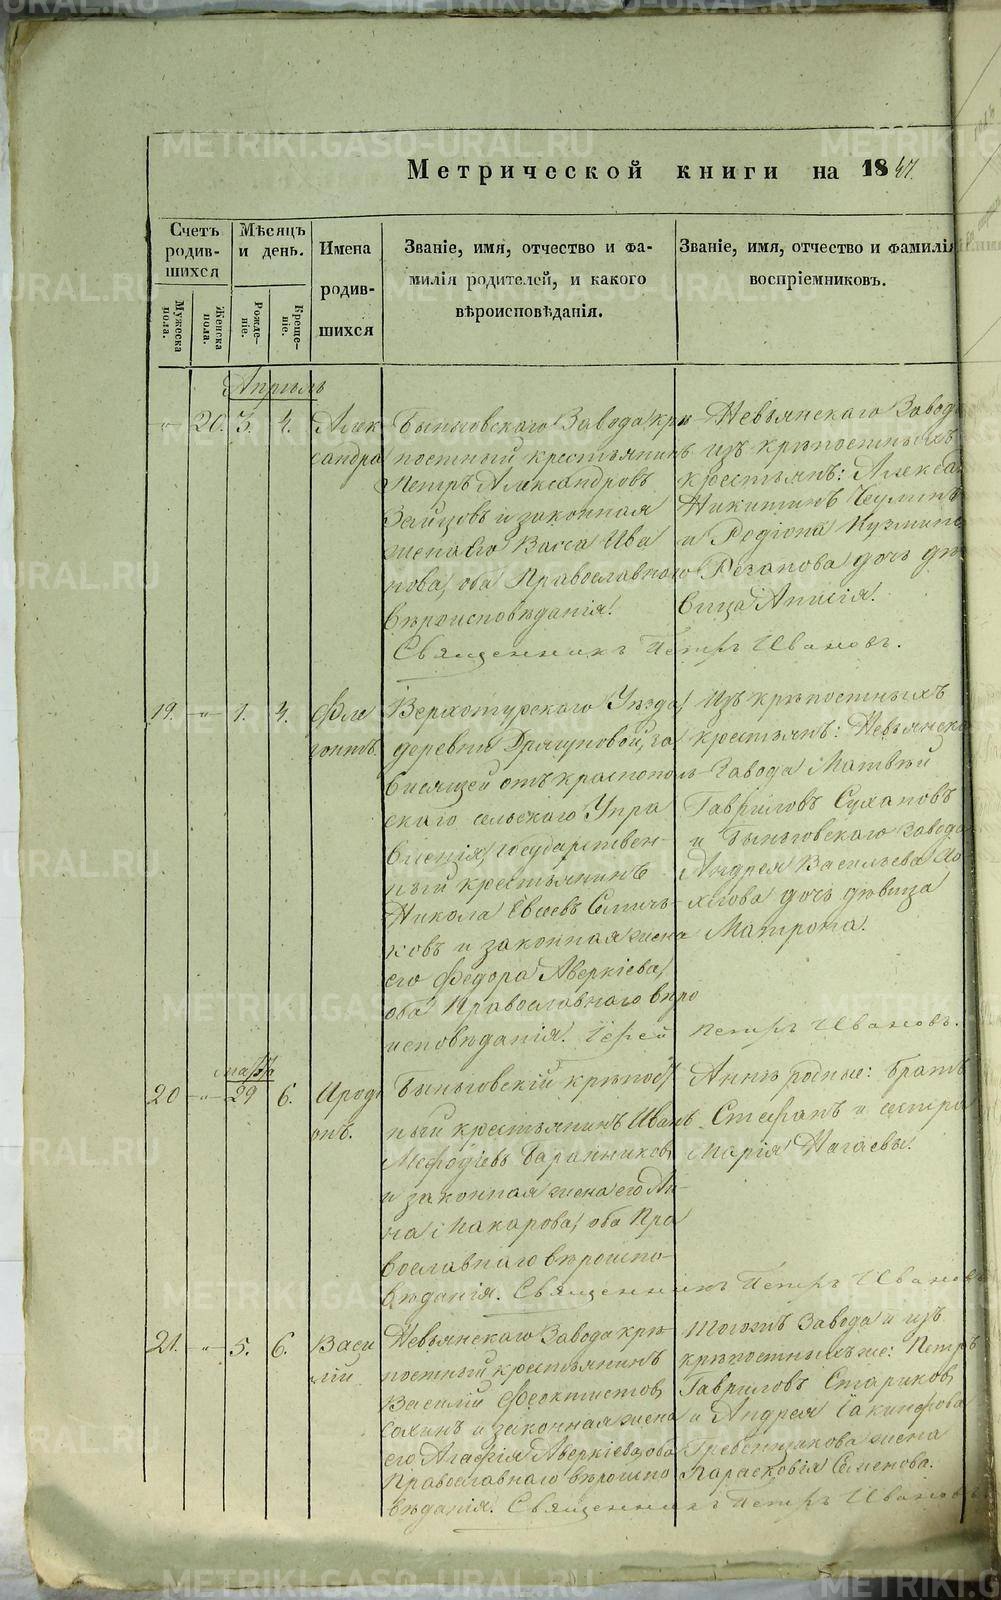 Метрической книги на 1847.
Счетъ родив-шихся
Мѣсяцъ и день.
Имена родив-шихся
Званіе, имя, отчество и фа-
милія родителей, и какого
вѣроисповѣданія.
Званіе, имя, отчество и фамилія
воспріемниковъ.
Мужеска пола.
Женска пола.
Рожде-ніе.
Креще-ніе.
Апрѣль
" 20. 3. 4. Алек
сандра
Быньговскаго Завода крѣ
постный крестьянинъ
Петръ Александровъ
Зайцовъ и законная
жена его Васса Ива
нова, оба Православнаго
вѣроисповѣданія.
Невьянскаго Завода
изъ крѣпостныхъ
крестьянъ: Алексѣй
Никитинъ
и Родіона Кузмина
Резанова дочь дѣ
вица Анисія.
Священникъ Петръ Ивановъ.
19. " 1. 4. Фле
гонтъ.
Верхотурскаго Уѣзда,
деревни за
висящей отъ краснополь
скаго сельскаго Упра
вленія, государствен-
ный крестьянинъ
Никола Евсеевъ Семичь-
ковъ и законная жена
его Федора Аверкіева,
оба Православнаго вѣро
исповѣданія. Іерей Петръ Ивановъ.
Изъ крѣпостныхъ
крестьянъ: Невьянска
Завода Матвѣй
Гавриловъ Сухановъ
и Быньговскаго Завода
Андрея Васильева
дочь дѣвица
Матрона.
Мартъ
20 " 29 6. Иродi
онъ.
Быньговскій крѣпост
ный крестьянинъ Иванъ
Мефодіевъ Баранниковъ,
и законная жена его Ан-
на Макарова, оба Пра
вославнаго вѣроиспо-
вѣданія. Священникъ Петръ Ивановъ
Анны родные: братъ
Стефанъ и сестра
Марія Нагаевы.
21. " 5. 6. Васи
лій
Невьянскаго Завода крѣ
постный крестьянинъ
Василій Феоктистовъ
и законная жена
его Агафія Аверкіева, оба
Православнаго вѣроиспо
вѣданія. Священникъ Петръ Ивановъ
Тогожъ Завода и изъ
крѣпостныхъ же: Петръ
Гавриловъ Стариковъ,
и Андрея Іакинфова
Гребенщикова жена
Параскевія Семенова.
METRIKI.GASO-URAL.RU